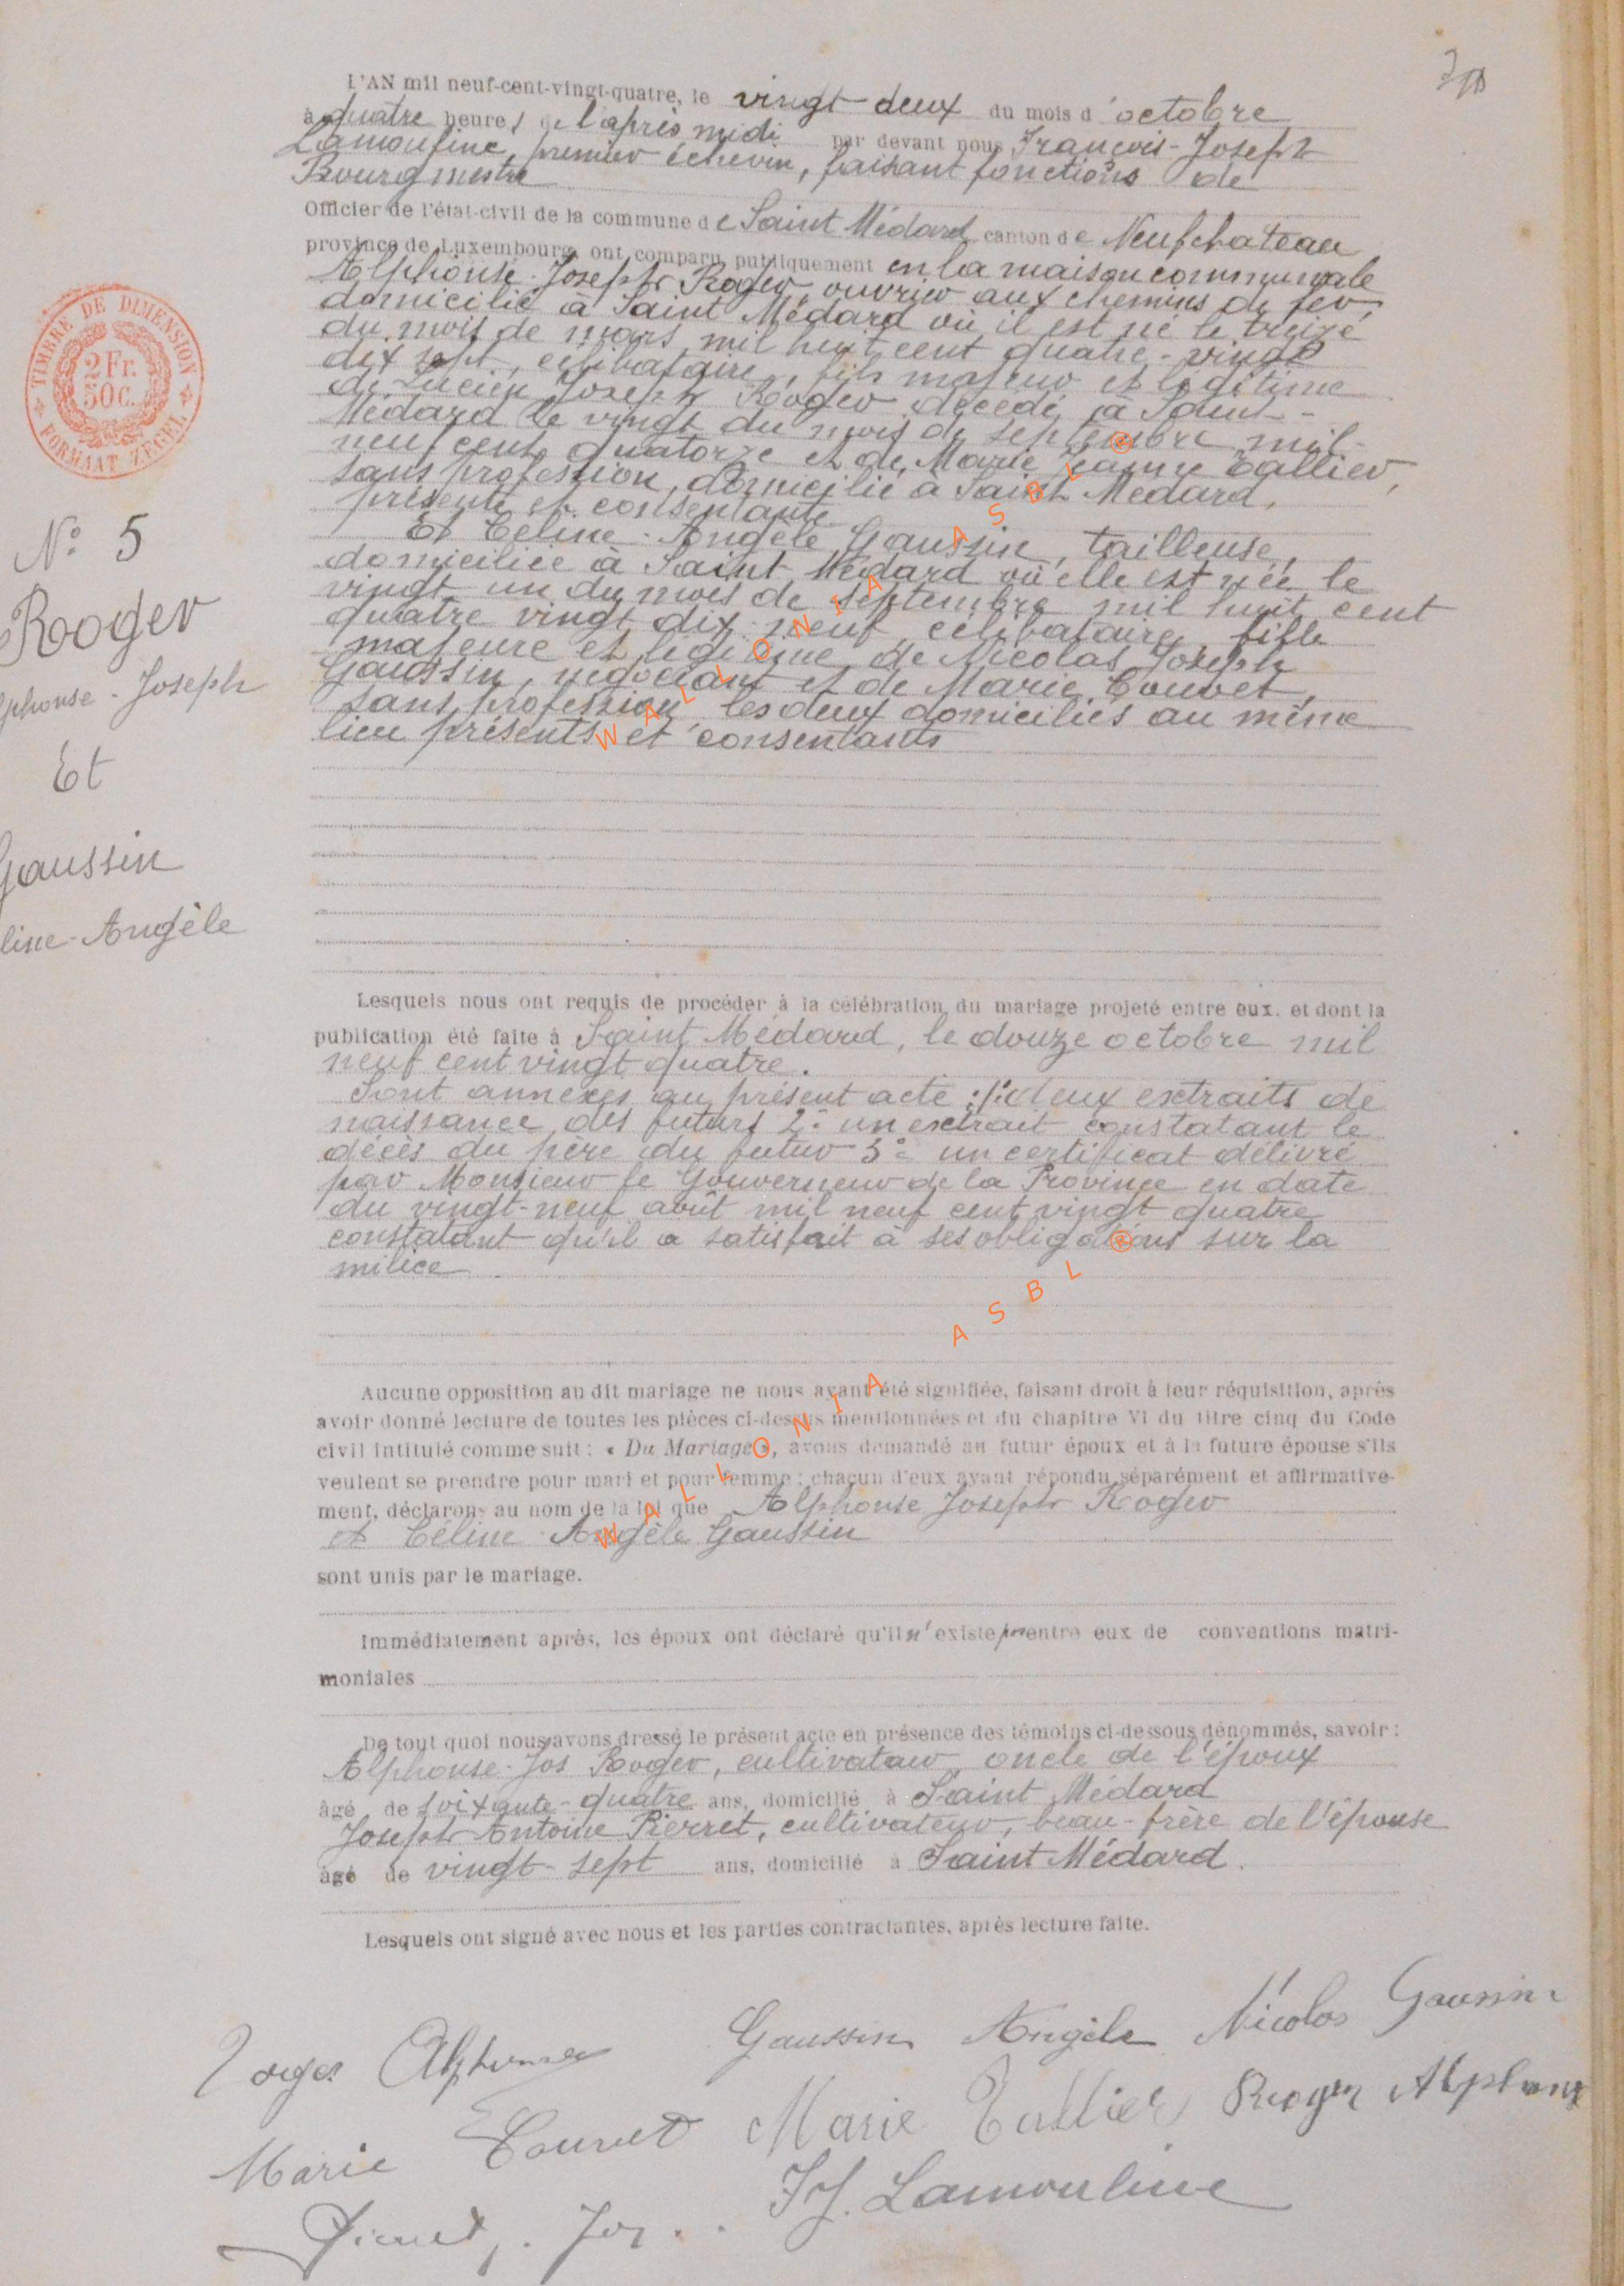 L'AN mil neuf-cent-vingt-quatre, le vingt deux du mois d'octobre
à quatre heures de l'après midi par devant nous François-Joseph
Lamouline, premier échevin, faisant fonctions de
Bourgmestre
Officier de l'état-civil de la commune de Saint Médard canton de Neufchateau
province de Luxembourg, ont comparu publiquement en la maison communale
Alphonse-Joseph Roger, ouvrier aux chemins de fer,
domicilié à Saint Médard où il est né le treize
du mois de mars mil huit cent quatre-vingt
dix sept, célibataire, fils majeur et légitime
de Lucien Joseph Roger décédé à Saint-
Médard le vingt du mois de septembre mil-
neuf cent quatorze et de Marie Jeanne Tallier,
sans profession, domicilié à Saint Médard,
présente et consentante
Et Céline-Angèle Gaussin, tailleuse,
domiciliée à Saint Médard où elle est née le
vingt-un du mois de septembre mil huit cent
quatre vingt dix-neuf, célibataire, fille
majeure et légitime de Nicolas Joseph
Gaussin, négociant et de Marie Couvet,
sans profession, les deux domiciliés au même
lieu présents et consentants
TIMBRE DE DIMENSION
2 Fr.
50 c.
FORMAAT ZEGEL
N° 5
Roger
lphonse-Joseph
Et
Gaussin
line-Angèle
Lesquels nous ont requis de procéder à la célébration du mariage projeté entre eux, et dont la
publication été faite à Saint Médard, le douze octobre mil
neuf cent vingt quatre.
Sont annexés au présent acte : 1° deux extraits de
naissance des futurs 2° un extrait constatant le
décès du père du futur 3° un certificat délivré
par Monsieur le Gouverneur de la Province en date
du vingt-neuf août mil neuf cent vingt quatre
constatant qu'il a satisfait à ses obligations sur la
milice
WALLONIA ASBL ®
WALLONIA ASBL ®
Aucune opposition au dit mariage ne nous ayant été signifiée, faisant droit à leur réquisition, après
avoir donné lecture de toutes les pièces ci-dessus mentionnées et du chapitre VI du titre cinq du Code
civil intitulé comme suit : « Du Mariage », avons demandé au futur époux et à la future épouse s'ils
veulent se prendre pour mari et pour femme ; chacun d'eux ayant répondu séparément et affirmative-
ment, déclarons au nom de la loi que Alphonse Joseph Roger
et Céline-Angèle Gaussin
sont unis par le mariage.
Immédiatement après, les époux ont déclaré qu'il n'existe pas entre eux de conventions matri-
moniales
De tout quoi nous avons dressé le présent acte en présence des témoins ci-dessous dénommés, savoir :
Alphonse-Jos Roger, cultivateur oncle de l'époux
âgé de soixante-quatre ans, domicilié à Saint Médard
Joseph-Antoine Pierret, cultivateur, beau-frère de l'épouse
âgé de vingt-sept ans, domicilié à Saint Médard.
Lesquels ont signé avec nous et les parties contractantes, après lecture faite.
Roger Alphonse Gaussin Angèle Nicolas Gaussin
Marie Couvet Marie Tallier Roger Alphonse
Pierret, Jos.. FJ. Lamouline